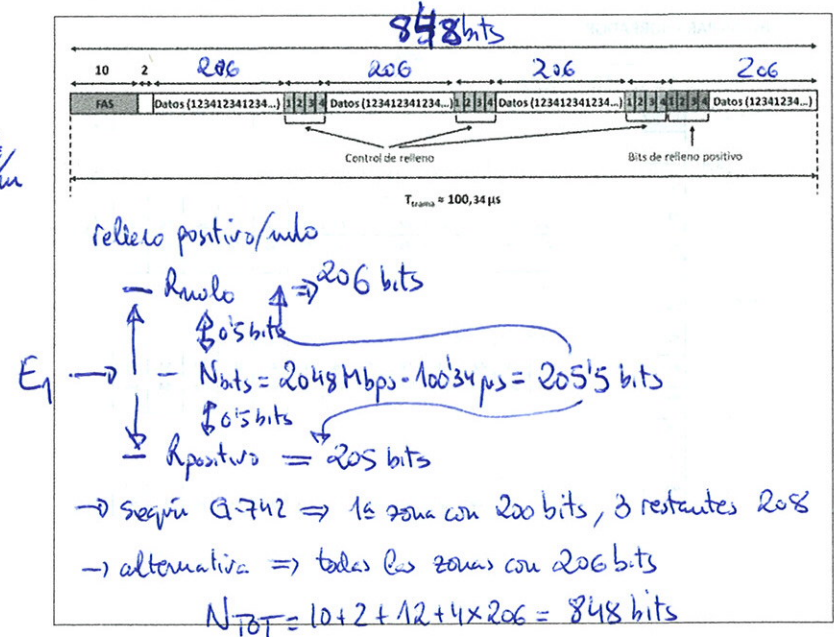 848 bits
10 2 206 206 206 206
FAS Datos (123412341234...) 1 2 3 4 Datos (123412341234...) 1 2 3 4 Datos (123412341234...) 1 2 3 4 1 2 3 4 Datos (123412341234...)
Control de relleno Bits de relleno positivo
Ttrama ≈ 100,34 μs
relleno positivo/nulo
- Rnulo ⇒ 206 bits
0'5 bits
E1 → - Nbits = 2048 Mbps · 100'34 μs = 205'5 bits
0'5 bits
- Rpositivo = 205 bits
→ según G.742 ⇒ 1ª zona con 200 bits, 3 restantes 208
→ alternativa ⇒ todas las zonas con 206 bits
NTOT = 10+2+12+4×206 = 848 bits